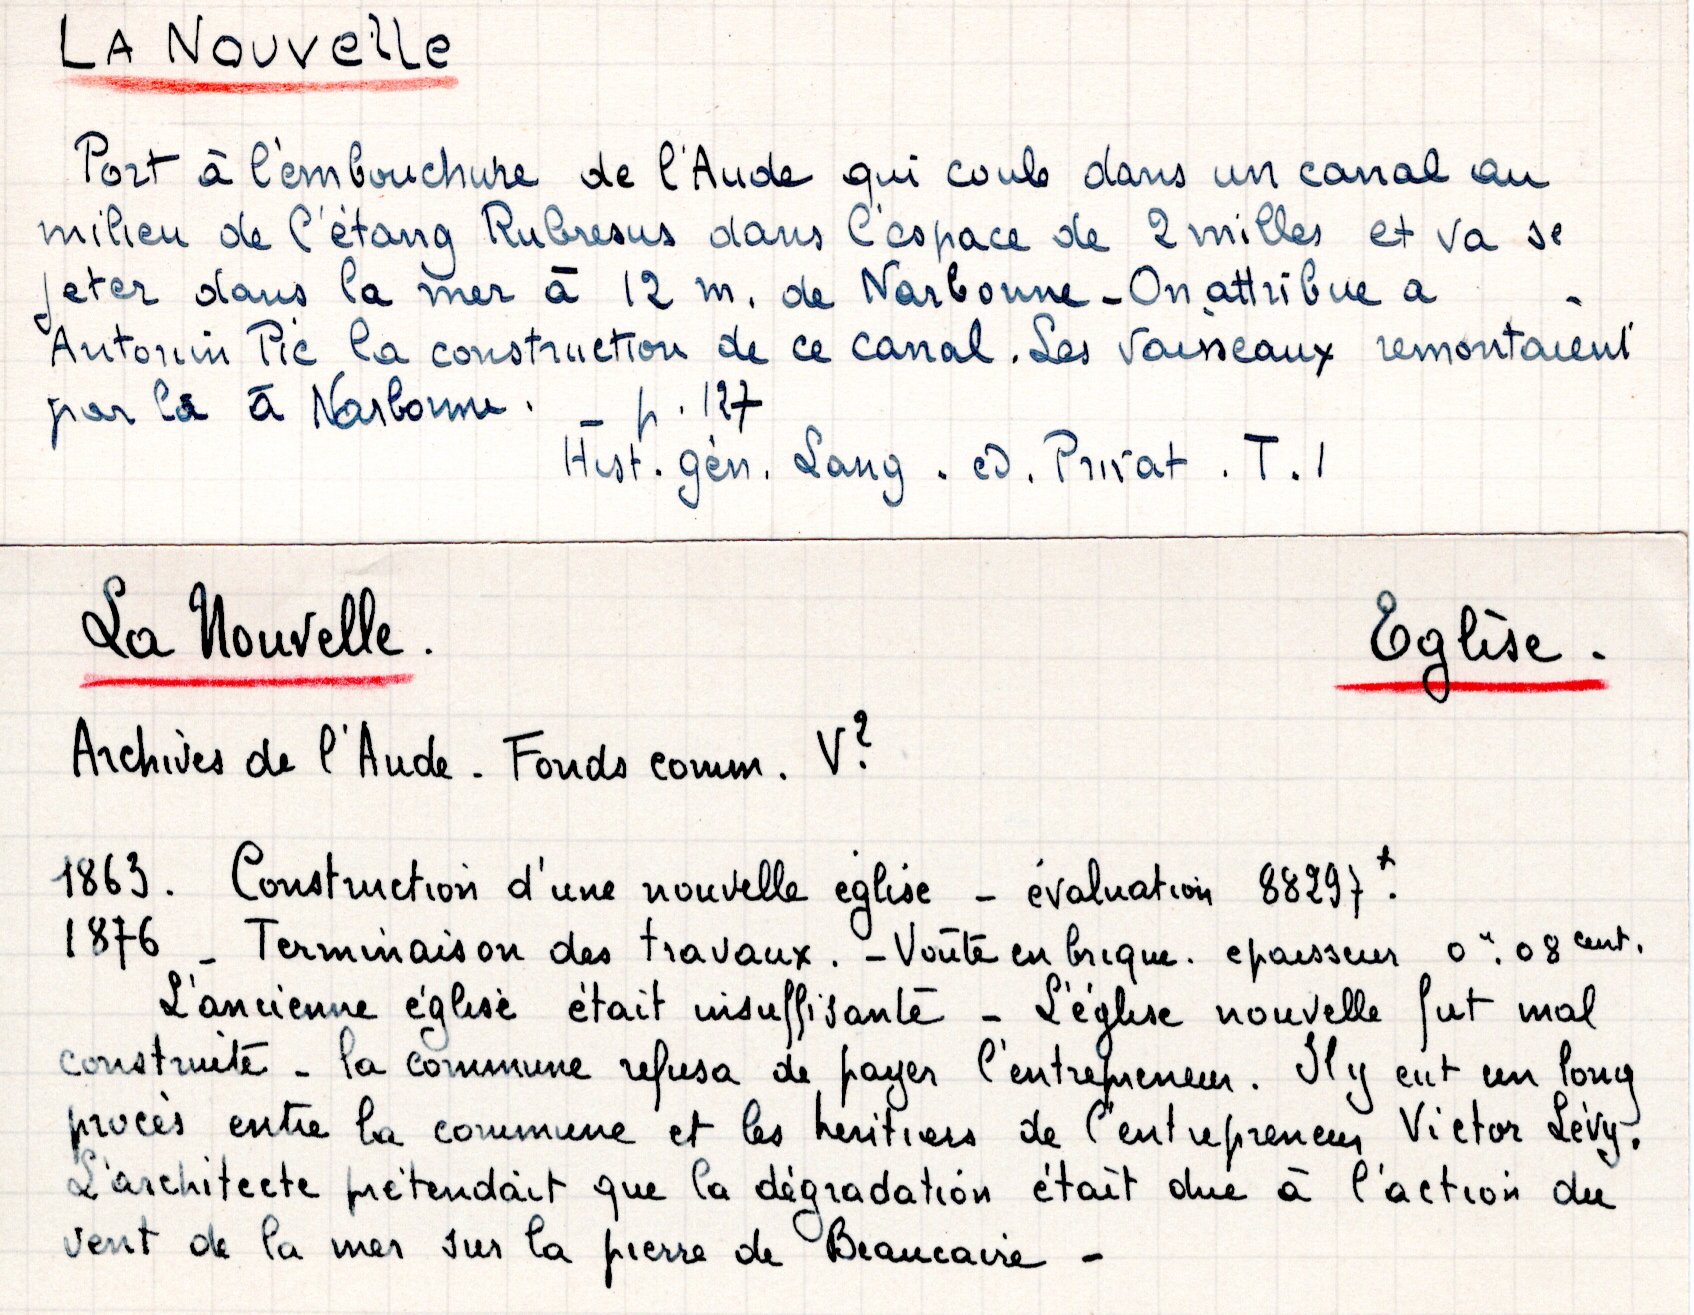 LA NOUVELLE
Port à l'embouchure de l'Aude qui coule dans un canal au
milieu de l'étang Rubresus dans l'espace de 2 milles et va se
jeter dans la mer à 12 m. de Narbonne - On attribue a
Antonin Pie la construction de ce canal. Les vaisseaux remontaient
par là à Narbonne. - p. 127
Hist. gén. Lang. ed. Privat. T. 1
La Nouvelle. Eglise.
Archives de l'Aude - Fonds comm. V?
1863. Construction d'une nouvelle église - évaluation 88297 f.
1876 - Terminaison des travaux. - Voûte en brique. epaisseur 0m.08 cent.
L'ancienne église était insuffisante - L'église nouvelle fut mal
construite - la commune refusa de payer l'entrepreneur. Il y eut un long
procès entre la commune et les heritiers de l'entrepreneur Victor Lévy.
L'architecte prétendait que la dégradation était due à l'action du
vent de la mer sur la pierre de Beaucaire -